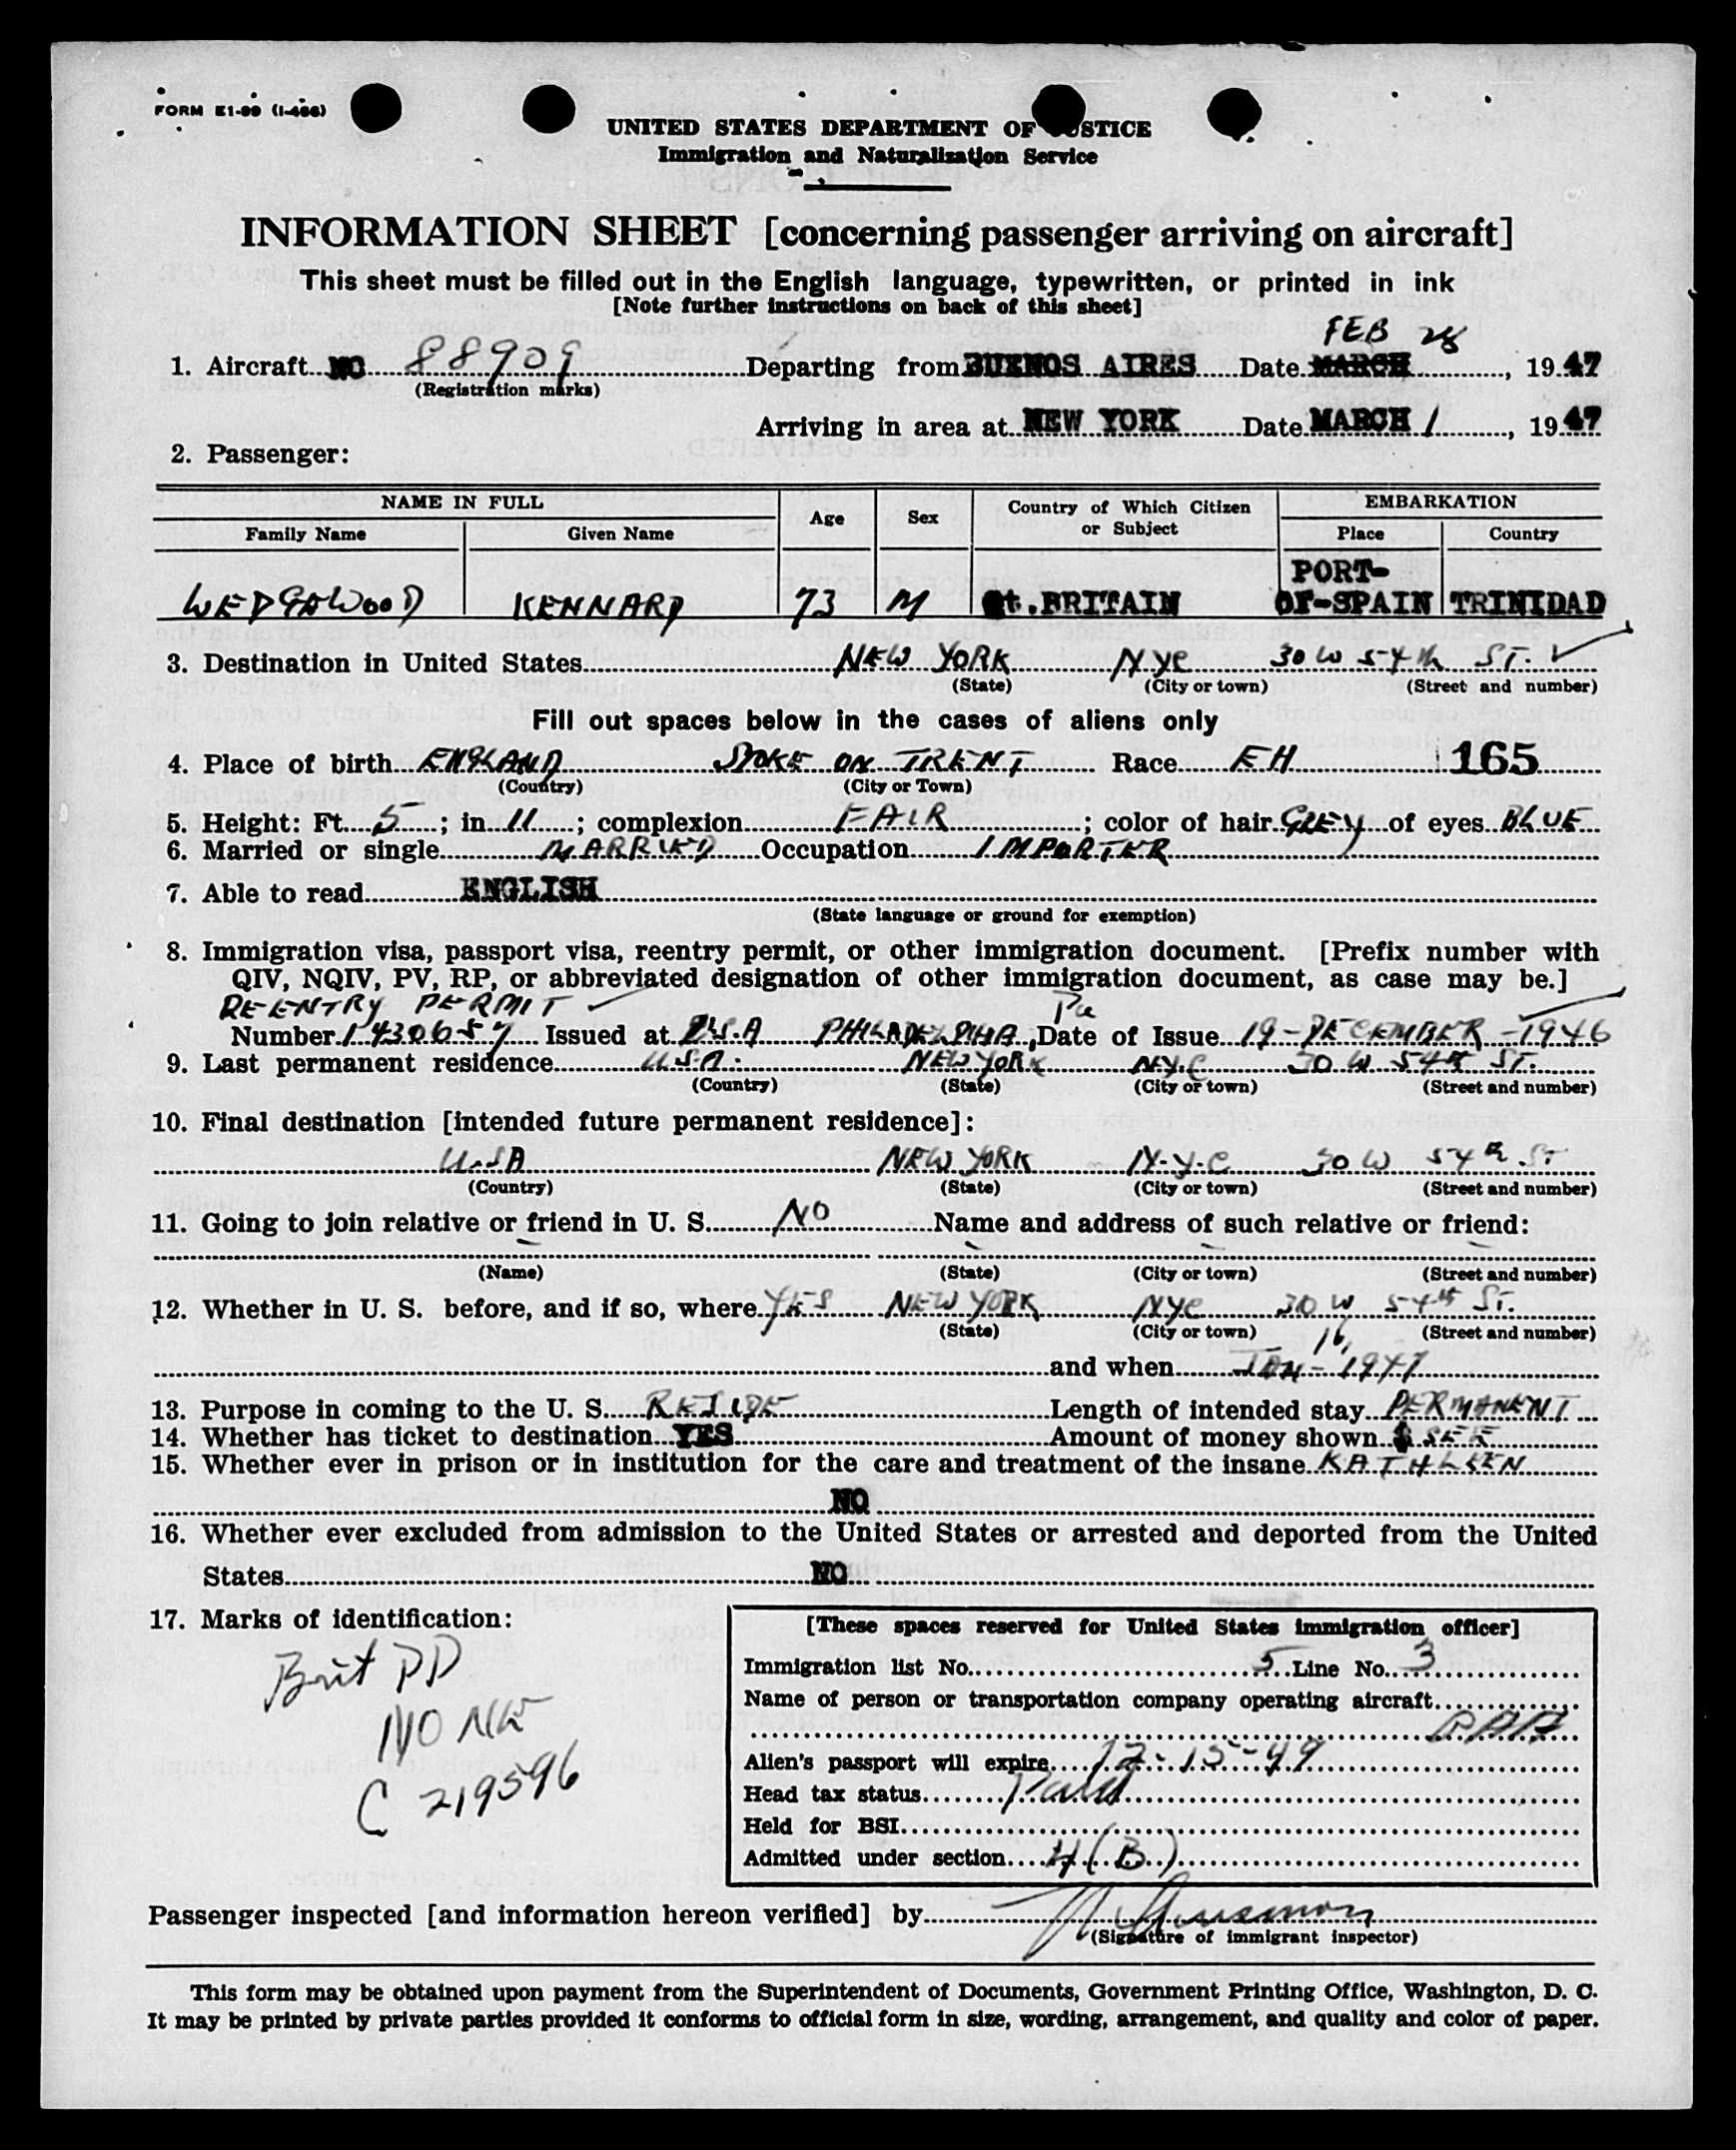 FORM E1-99 (I-466)
UNITED STATES DEPARTMENT OF JUSTICE
Immigration and Naturalization Service
INFORMATION SHEET [concerning passenger arriving on aircraft]
This sheet must be filled out in the English language, typewritten, or printed in ink
[Note further instructions on back of this sheet]
FEB 28
1. Aircraft NC 88909 Departing from BUENOS AIRES Date MARCH, 1947
(Registration marks)
Arriving in area at NEW YORK Date MARCH 1, 1947
2. Passenger:
NAME IN FULL Age Sex Country of Which Citizen or Subject EMBARKATION
Family Name Given Name Place Country
WEDGEWOOD KENNARD 73 M Gt. BRITAIN PORT-OF-SPAIN TRINIDAD
3. Destination in United States NEW YORK NYC 30 W 54th ST. ✓
(State) (City or town) (Street and number)
Fill out spaces below in the cases of aliens only
4. Place of birth ENGLAND STOKE ON TRENT Race EH 165
(Country) (City or Town)
5. Height: Ft. 5; in. 11; complexion FAIR; color of hair GREY of eyes BLUE
6. Married or single MARRIED Occupation IMPORTER
7. Able to read ENGLISH
(State language or ground for exemption)
8. Immigration visa, passport visa, reentry permit, or other immigration document. [Prefix number with
QIV, NQIV, PV, RP, or abbreviated designation of other immigration document, as case may be.]
REENTRY PERMIT ✓ Pa
Number 1430657 Issued at U.S.A PHILADELPHIA, Date of Issue 19-DECEMBER-1946
9. Last permanent residence U.S.A. NEW YORK NY.C 30 W 54th ST.
(Country) (State) (City or town) (Street and number)
10. Final destination [intended future permanent residence]:
U.S.A NEW YORK N.Y.C 30 W 54th ST
(Country) (State) (City or town) (Street and number)
11. Going to join relative or friend in U. S. NO Name and address of such relative or friend:
(Name) (State) (City or town) (Street and number)
12. Whether in U. S. before, and if so, where YES NEW YORK NYC 30 W 54th ST.
(State) (City or town) (Street and number)
and when JAN 16, 1947
13. Purpose in coming to the U. S. RESIDE Length of intended stay PERMANENT
14. Whether has ticket to destination YES Amount of money shown $ SEE
15. Whether ever in prison or in institution for the care and treatment of the insane KATHLEEN
NO
16. Whether ever excluded from admission to the United States or arrested and deported from the United
States NO
17. Marks of identification:
Brit PP
NO NW
C 219596
[These spaces reserved for United States immigration officer]
Immigration list No. 5 Line No. 3
Name of person or transportation company operating aircraft
PAA
Alien's passport will expire 12-15-49
Head tax status Paid
Held for BSI
Admitted under section 4 (B)
Passenger inspected [and information hereon verified] by
(Signature of immigrant inspector)
This form may be obtained upon payment from the Superintendent of Documents, Government Printing Office, Washington, D. C.
It may be printed by private parties provided it conforms to official form in size, wording, arrangement, and quality and color of paper.